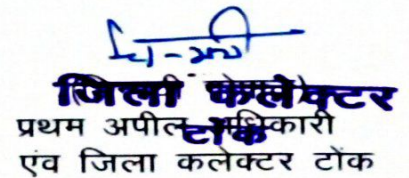 जिला कलेक्टर
टोंक
प्रथम अपील अधिकारी
एंव जिला कलेक्टर टोंक